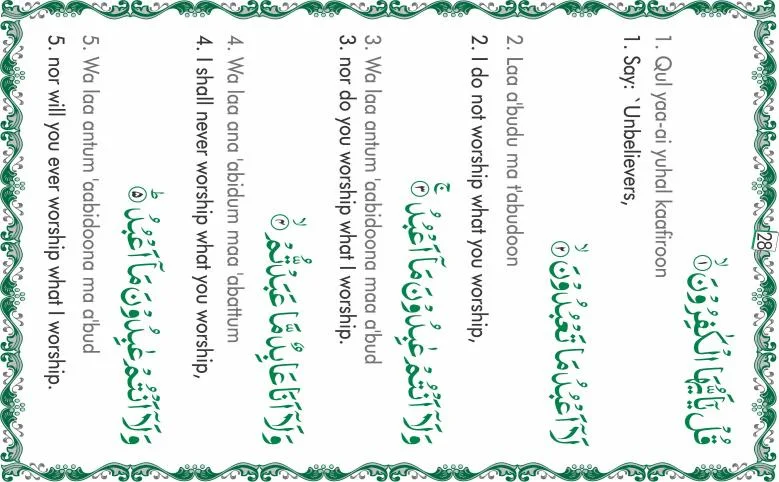 28
قُلْ يٰٓاَيُّهَا الْكٰفِرُوْنَ ۙ﴿۱﴾
1. Qul yaa-ai yuhal kaafiroon
1. Say: `Unbelievers,
لَاۤ اَعْبُدُ مَا تَعْبُدُوْنَ ۙ﴿۲﴾
2. Laa a'budu ma t'abudoon
2. I do not worship what you worship,
وَلَاۤ اَنْتُمْ عٰبِدُوْنَ مَاۤ اَعْبُدُ ۚ﴿۳﴾
3. Wa laa antum 'aabidoona maa a'bud
3. nor do you worship what I worship.
وَلَاۤ اَنَا عَابِدٌ مَّا عَبَدْتُّمْ ۙ﴿۴﴾
4. Wa laa ana 'abidum maa 'abattum
4. I shall never worship what you worship,
وَلَاۤ اَنْتُمْ عٰبِدُوْنَ مَاۤ اَعْبُدُ ؕ﴿۵﴾
5. Wa laa antum 'aabidoona ma a'bud
5. nor will you ever worship what I worship.